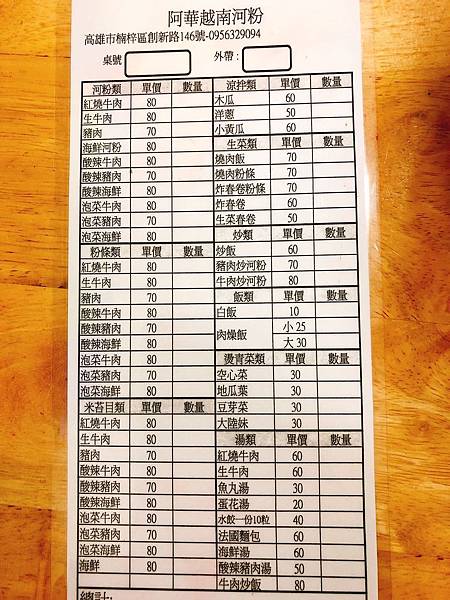 阿華越南河粉
高雄市楠梓區創新路146號-0956329094
桌號 外帶:
河粉類 單價 數量
紅燒牛肉 80
生牛肉 80
豬肉 70
海鮮河粉 80
酸辣牛肉 80
酸辣豬肉 70
酸辣海鮮 80
泡菜牛肉 80
泡菜豬肉 70
泡菜海鮮 80
粉條類 單價 數量
紅燒牛肉 80
生牛肉 80
豬肉 70
酸辣牛肉 80
酸辣豬肉 70
酸辣海鮮 80
泡菜牛肉 80
泡菜豬肉 70
泡菜海鮮 80
米苔目類 單價 數量
紅燒牛肉 80
生牛肉 80
豬肉 70
酸辣牛肉 80
酸辣豬肉 70
酸辣海鮮 80
泡菜牛肉 80
泡菜豬肉 70
泡菜海鮮 80
海鮮 80
總計:
涼拌類 單價 數量
木瓜 60
洋蔥 50
小黃瓜 60
生菜類 單價 數量
燒肉飯 70
燒肉粉條 70
炸春卷粉條 70
炸春卷 60
生菜春卷 50
炒類 單價 數量
炒飯 60
豬肉炒河粉 70
牛肉炒河粉 80
飯類 單價 數量
白飯 10
肉燥飯 小 25
大 30
燙青菜類 單價 數量
空心菜 30
地瓜葉 30
豆芽菜 30
大陸妹 30
湯類 單價 數量
紅燒牛肉 60
生牛肉 60
魚丸湯 30
蛋花湯 20
水餃一份10粒 40
法國麵包 60
海鮮湯 60
酸辣豬肉湯 50
牛肉炒飯 80